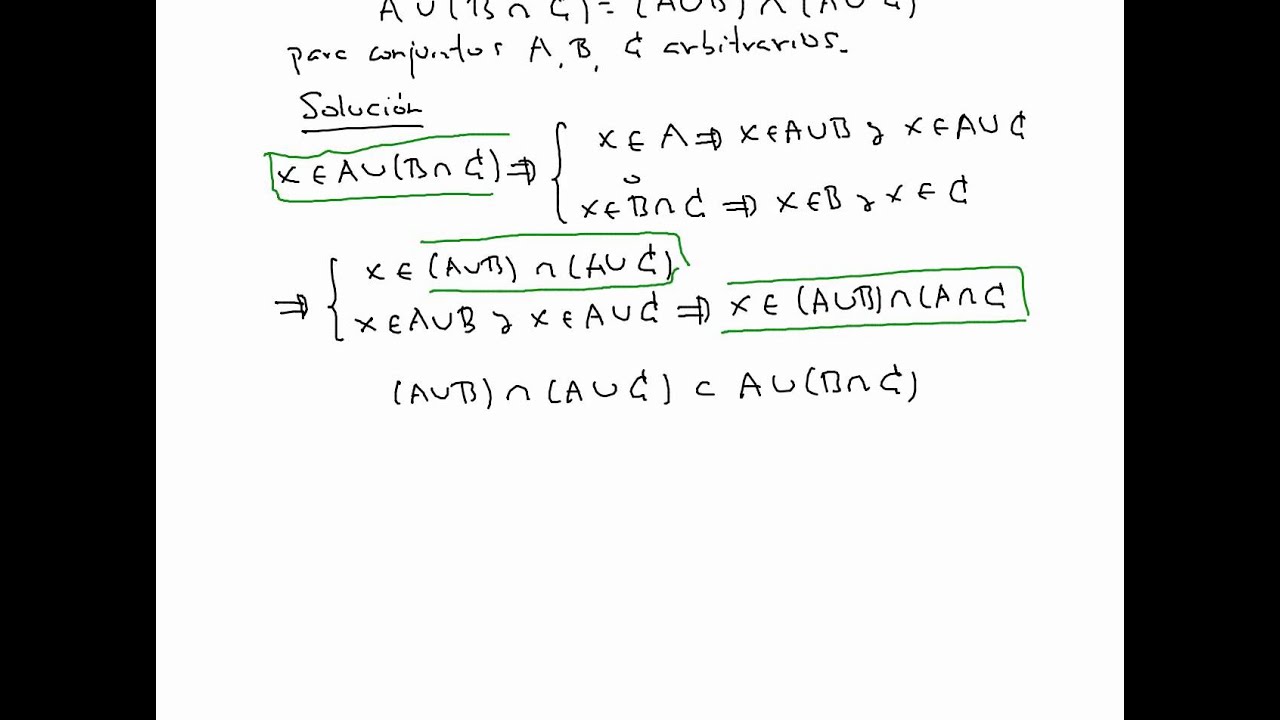 A ∪ (B ∩ C) = (A∪B) ∩ (A ∪ C)
para conjuntos A, B, C arbitrarios.
Solución
x ∈ A ∪ (B ∩ C) ⇒ { x ∈ A ⇒ x ∈ A∪B y x ∈ A ∪ C
o
x ∈ B ∩ C ⇒ x ∈ B y x ∈ C
⇒ { x ∈ (A∪B) ∩ (A ∪ C)
x ∈ A∪B y x ∈ A ∪ C ⇒ x ∈ (A∪B) ∩ (A ∩ C
(A∪B) ∩ (A ∪ C) ⊂ A ∪ (B ∩ C)